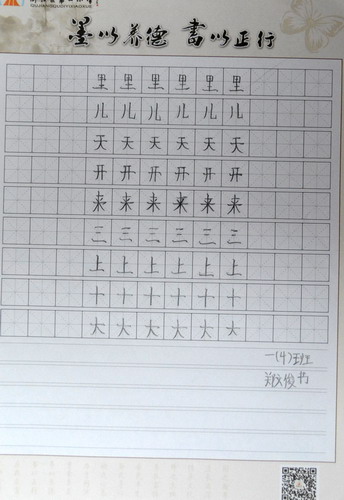 墨以养德 书以正行
里里里里里里
儿儿儿儿儿儿
天天天天天天
开开开开开开
来来来来来来
三三三三三三
上上上上上上
十十十十十十
大大大大大大
一(4)班
郑文俊书